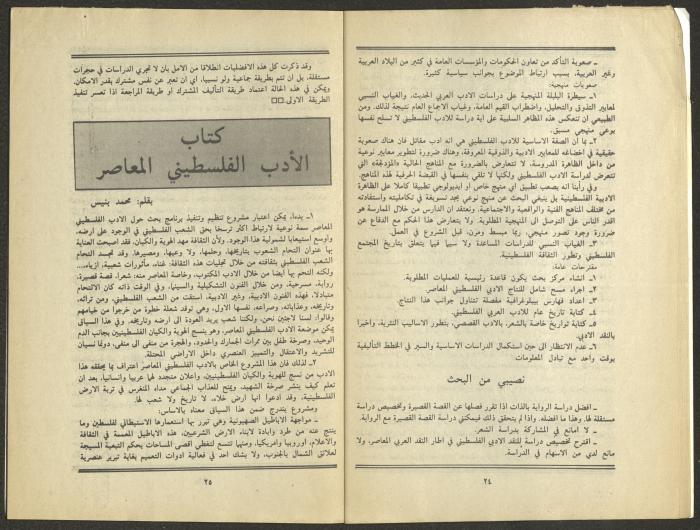 ـ صعوبة التأكد من تعاون الحكومات والمؤسسات العامة في كثير من البلاد العربية
وغير العربية، بسبب ارتباط الموضوع بجوانب سياسية كثيرة.
صعوبات منهجية:
١ـ سيطرة البلبلة المنهجية على دراسات الادب العربي الحديث، والغياب النسبي
لمعايير التذوق والتحليل، واضطراب القيم العامة، وغياب الاجماع العام نتيجة لذلك. ومن
الطبيعي ان تنعكس هذه المظاهر السلبية على اية دراسة للادب الفلسطيني لا تسلح نفسها
بوعي منهجي مسبق.
٢ـ بما أن الصفة الاساسية للادب الفلسطيني هي انه ادب مقاتل فان هناك صعوبة
حقيقية في اخضاعه للمعايير الادبية والذوقية المعروفة، وهناك ضرورة لتطوير معايير نوعية
من داخل الظاهرة المدروسة، لا تتعارض بالضرورة مع المناهج الحالية
تتعرض لدراسة الادب الفلسطيني ولكنها لا تلقي بنفسها في القبضة الحرفية لهذه المناهج.
وفي رأينا انه يصعب تطبيق اي منهج خاص او ايديولوجي تطبيقا كاملا على الظاهرة
الادبية الفلسطينية بل ينبغي البحث عن منهج نوعي يجد تسويغه في تكامليته واستفادته
من مختلف المناهج الفنية والواقعية والاجتماعية. ونعتقد ان الدارس من خلال الممارسة هو
اقدر الناس على التوصل الى المنهجية المطلوبة. ولا يتعارض هذا الحكم مع الدفاع عن
ضرورة وجود تصور منهجي، ربما مبسط ومرن، قبل الشروع في العمل.
٣ـ الغياب النسبي للدراسات المساعدة ولا سيما فيما يتعلق بتاريخ المجتمع
الفلسطيني وتطور الثقافة الفلسطينية.
مقترحات عامة:
١ـ انشاء مركز بحث يكون قاعدة رئيسية للعمليات المطلوبة.
٢ـ اجراء مسح شامل للنتاج الادبي الفلسطيني المعاصر.
٣ـ اعداد فهارس بيبلوغرافية مفصلة تتناول جوانب هذا النتاج.
٤ـ كتابة تاريخ عام للادب العربي الفلسطيني.
٥ـ كتابة تواريخ خاصة بالشعر، بالادب القصصي، بتطور الاساليب النثرية، واخيرا
بالنقد الادبي.
٦ـ عدم الانتظار الى حين استكمال الدراسات الاساسية والسير في الخطط التأليفية
بوقت واحد مع تبادل المعلومات.
نصيبي من البحث
ـ افضل دراسة الرواية بالذات اذا تقرر فصلها عن القصة القصيرة وتخصيص دراسة
مستقلة لها، وهذا ما افضله. واذا لم يتحقق ذلك فيمكنني دراسة القصة القصيرة مع الرواية.
ـ لا امانع في المشاركة بدراسة الشعر.
ـ اقترح تخصيص دراسة للنقد الادبي الفلسطيني في اطار النقد العربي المعاصر، ولا
مانع لدي من الاسهام في الدراسة.
٢٤
وقد ذكرت كل هذه الافضليات انطلاقا من الامل بان لا تجري الدراسات في حجرات
مستقلة، بل ان تتم بطريقة جماعية ولو نسبيا، اي ان تعبر عن نفس مشترك بقدر الامكان.
ويمكن في هذه الحالة اعتماد طريقة التأليف المشترك او طريقة المراجعة اذا تعسر تنفيذ
الطريقة الاولى.□□
كتاب
الأدب الفلسطيني المعاصر
بقلم: محمد بنيس
١ـ بدءا، يمكن اعتبار مشروع تنظيم وتنفيذ برنامج بحث حول الادب الفلسطيني
المعاصر سمة نوعية لارتباط اكثر ترسخا بحق الشعب الفلسطيني في الوجود على ارضه،
وأوسع استيعابا لشمولية هذا الوجود. ولأن الثقافة مهد الهوية والكيان، فقد اصبحت العناية
بها عنوان التحام الشعوب بتاريخها، وحلمها، ولا وعيها، ومصيرها. وقد تجسد التحام
الشعب الفلسطيني بثقافته من خلال تجليات هذه الثقافة: غناء، مأثورات شعبية، ازياء...
ولكنه التحم بها ايضا من خلال الادب المكتوب، وخاصة المعاصر منه: شعرا، قصة قصيرة،
رواية، مسرحية، ومن خلال الفنون التشكيلية والسينما، وفي الوقت ذاته كان الالتحام
متبادلا. فهذه الفنون الادبية، وغير الادبية، استقت من الشعب الفلسطيني، ومن تراثه،
وتاريخه، وعذاباته، وصراعه، نفسها الاول، وهي توقد شعلة خطوة من خرجوا من خيامهم
وقالوا: لسنا لاجئين نحن، ولكننا شعب يريد العودة الى ارضه وتاريخه. وفي هذا السياق
يمكن موضعة الادب الفلسطيني المعاصر، فهو ينسج الهوية والكيان الفلسطينيين بجانب الدم
الوحيد، وصرخة طفل بين ممرات الجمارك والحدود، والهجرة من منفى الى منفى، دونما نسيان
للتشريد والاعتقال والتمييز العنصري داخل الاراضي المحتلة.
٢ـ لذلك فان هذا المشروع الخاص بالادب الفلسطيني المعاصر اعتراف بما يحققه هذا
الادب من نسج للهوية والكيان الفلسطينيين، واعلان متجدد لها عربيا وانسانيا، بعد ان
تعلم كيف ينشر صرخة الشهيد، ويمنح للعذاب الجماعي مداه المنغرس في تربة الارض
الفلسطينية، وقد ادعوا انها ارض خلاء، لا تاريخ ولا شعب لها.
ومشروع يندرج ضمن هذا السياق معناه بالاساس:
ـ مواجهة الاباطيل الصهيونية وهي تبرر بها استعمارها الاستيطاني لفلسطين وما
ينتج عنه من طرد وابادة لابناء الارض الشرعيين، هذه الاباطيل المعممة في الثقافة
والاعلام، اوروبيا وامريكيا، ومنها تتسع لتغطي اقصى المساحات بحكم التبعية المسيجة
لعلائق الشمال بالجنوب، ولا يشك احد في فعالية ادوات التعميم بغاية تبرير عنصرية
٢٥